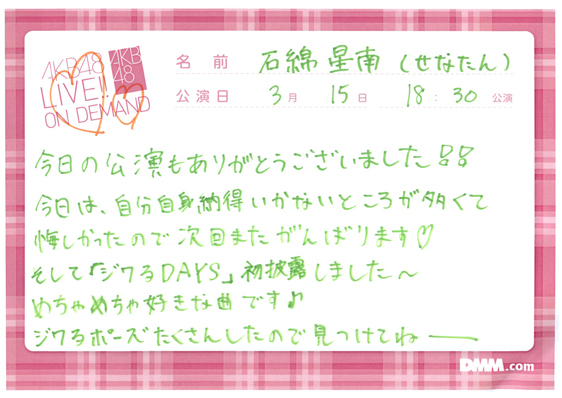 AKB48
LIVE!!
ON DEMAND
AKB
48
名前 石綿星南(せなたん)
公演日 3月 15日 18:30 公演
今日の公演もありがとうございました!!
今日は、自分自身納得いかないところが多くて
悔しかったので次回またがんばります♡
そして「ジワるDAYS」初披露しました〜
めちゃめちゃ好きな曲です♪
ジワるポーズたくさんしたので見つけてねー
DMM.com